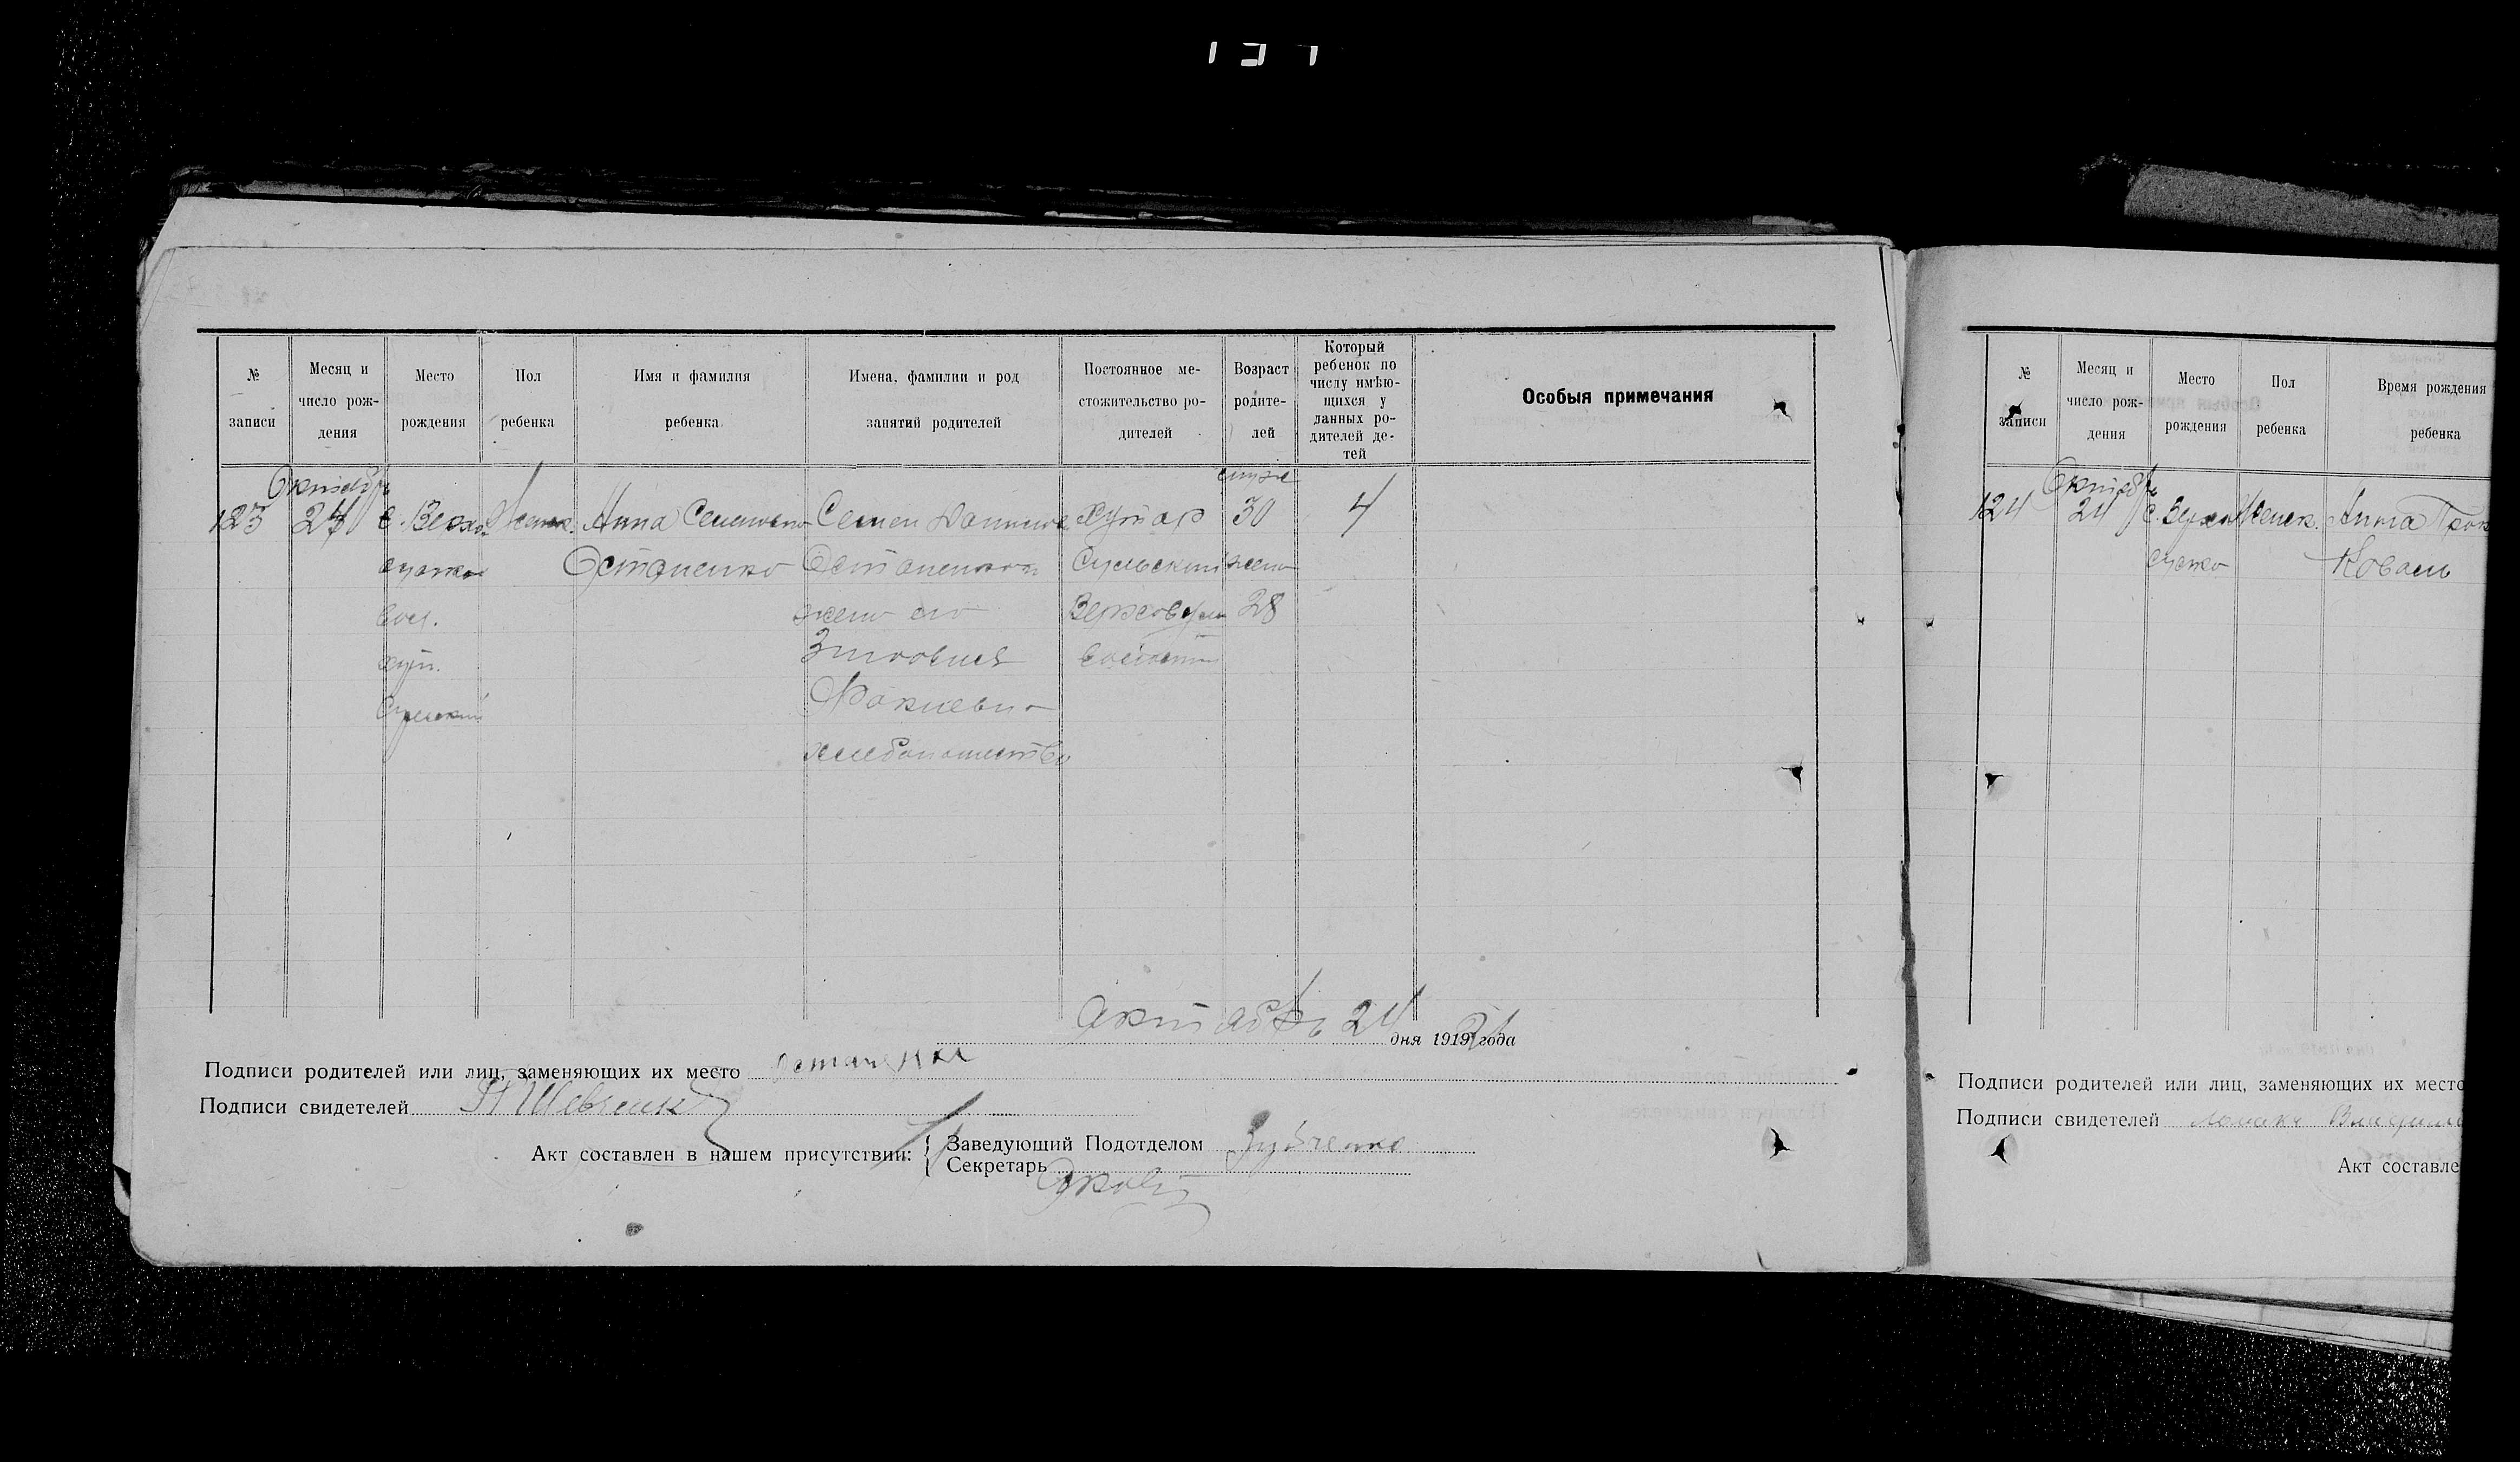 № записи
Месяц и число рождения
Место рождения
Пол ребенка
Имя и фамилия ребенка
Имена, фамилии и род занятий родителей
Постоянное ме-
стожительство ро-
дителей
Возраст
родите-
лей
Который
ребенок по
числу имѣю-
щихся у
данных ро-
дителей де-
тей
Особыя примечания
Октябрь
123
24
с. Верхо
сулка
вол.
хут.
Сульский
Женск.
Анна Семеновна
Остапенко
Семен
Остапенко
жена его
Зиновия
хлебопашество
хутор
Сульский
волости
муж
30
жена
28
4
Октябрь 24 дня 1919 21 года
Подписи родителей или лиц, заменяющих их место Остапенко
Подписи свидетелей Шевченко
Акт составлен в нашем присутствии:
Заведующий Подотделом Зубченко
Секретарь
№ записи
Месяц и
число рож-
дения
Место
рождения
Пол
ребенка
Время рождения
ребенка
Октябрь
124
24
с. Верхо
сулка
Женск.
Анна
Коваль
Подписи родителей или лиц, заменяющих их место
Подписи свидетелей
Акт составле